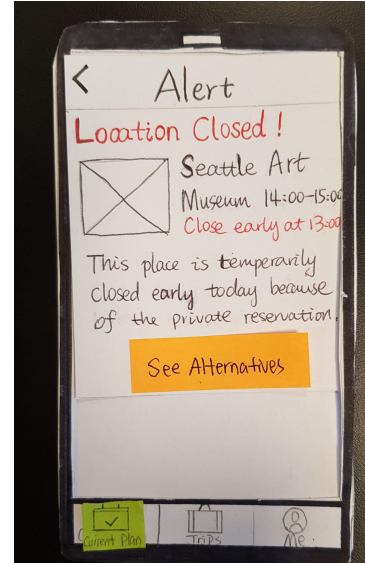 <
Alert
Location Closed!
Seattle Art
Museum 14:00-15:00
Close early at 13:00
This place is temperarily
closed early today because
of the private reservation.
See Alternatives
Current Plan
Trips
Me.